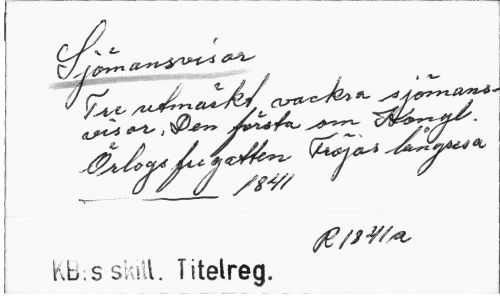 Sjömansvisor
Tre utmärkt vackra sjömans-
visor, Den första om Kongl.
Örlogsfregatten Fröjas långresa
1841
R 1841 a
KB:s skill. Titelreg.